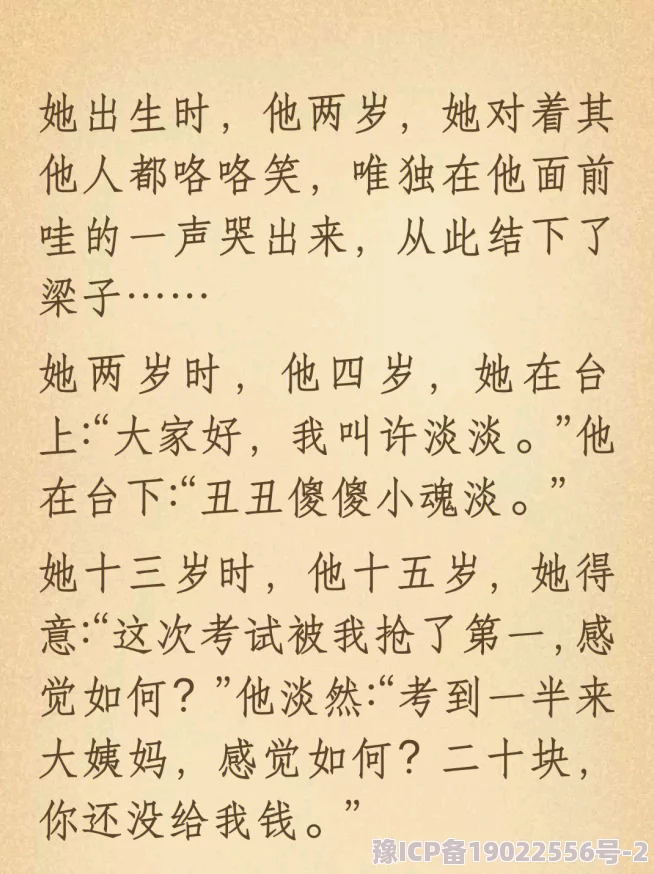 她出生时，他两岁，她对着其
他人都咯咯笑，唯独在他面前
哇的一声哭出来，从此结下了
梁子……
她两岁时，他四岁，她在台
上:“大家好，我叫许淡淡。”他
在台下:“丑丑傻傻小魂淡。”
她十三岁时，他十五岁，她得
意:“这次考试被我抢了第一,感
觉如何？”他淡然:“考到一半来
大姨妈，感觉如何？二十块，
你还没给我钱。”
豫ICP备19022556号-2